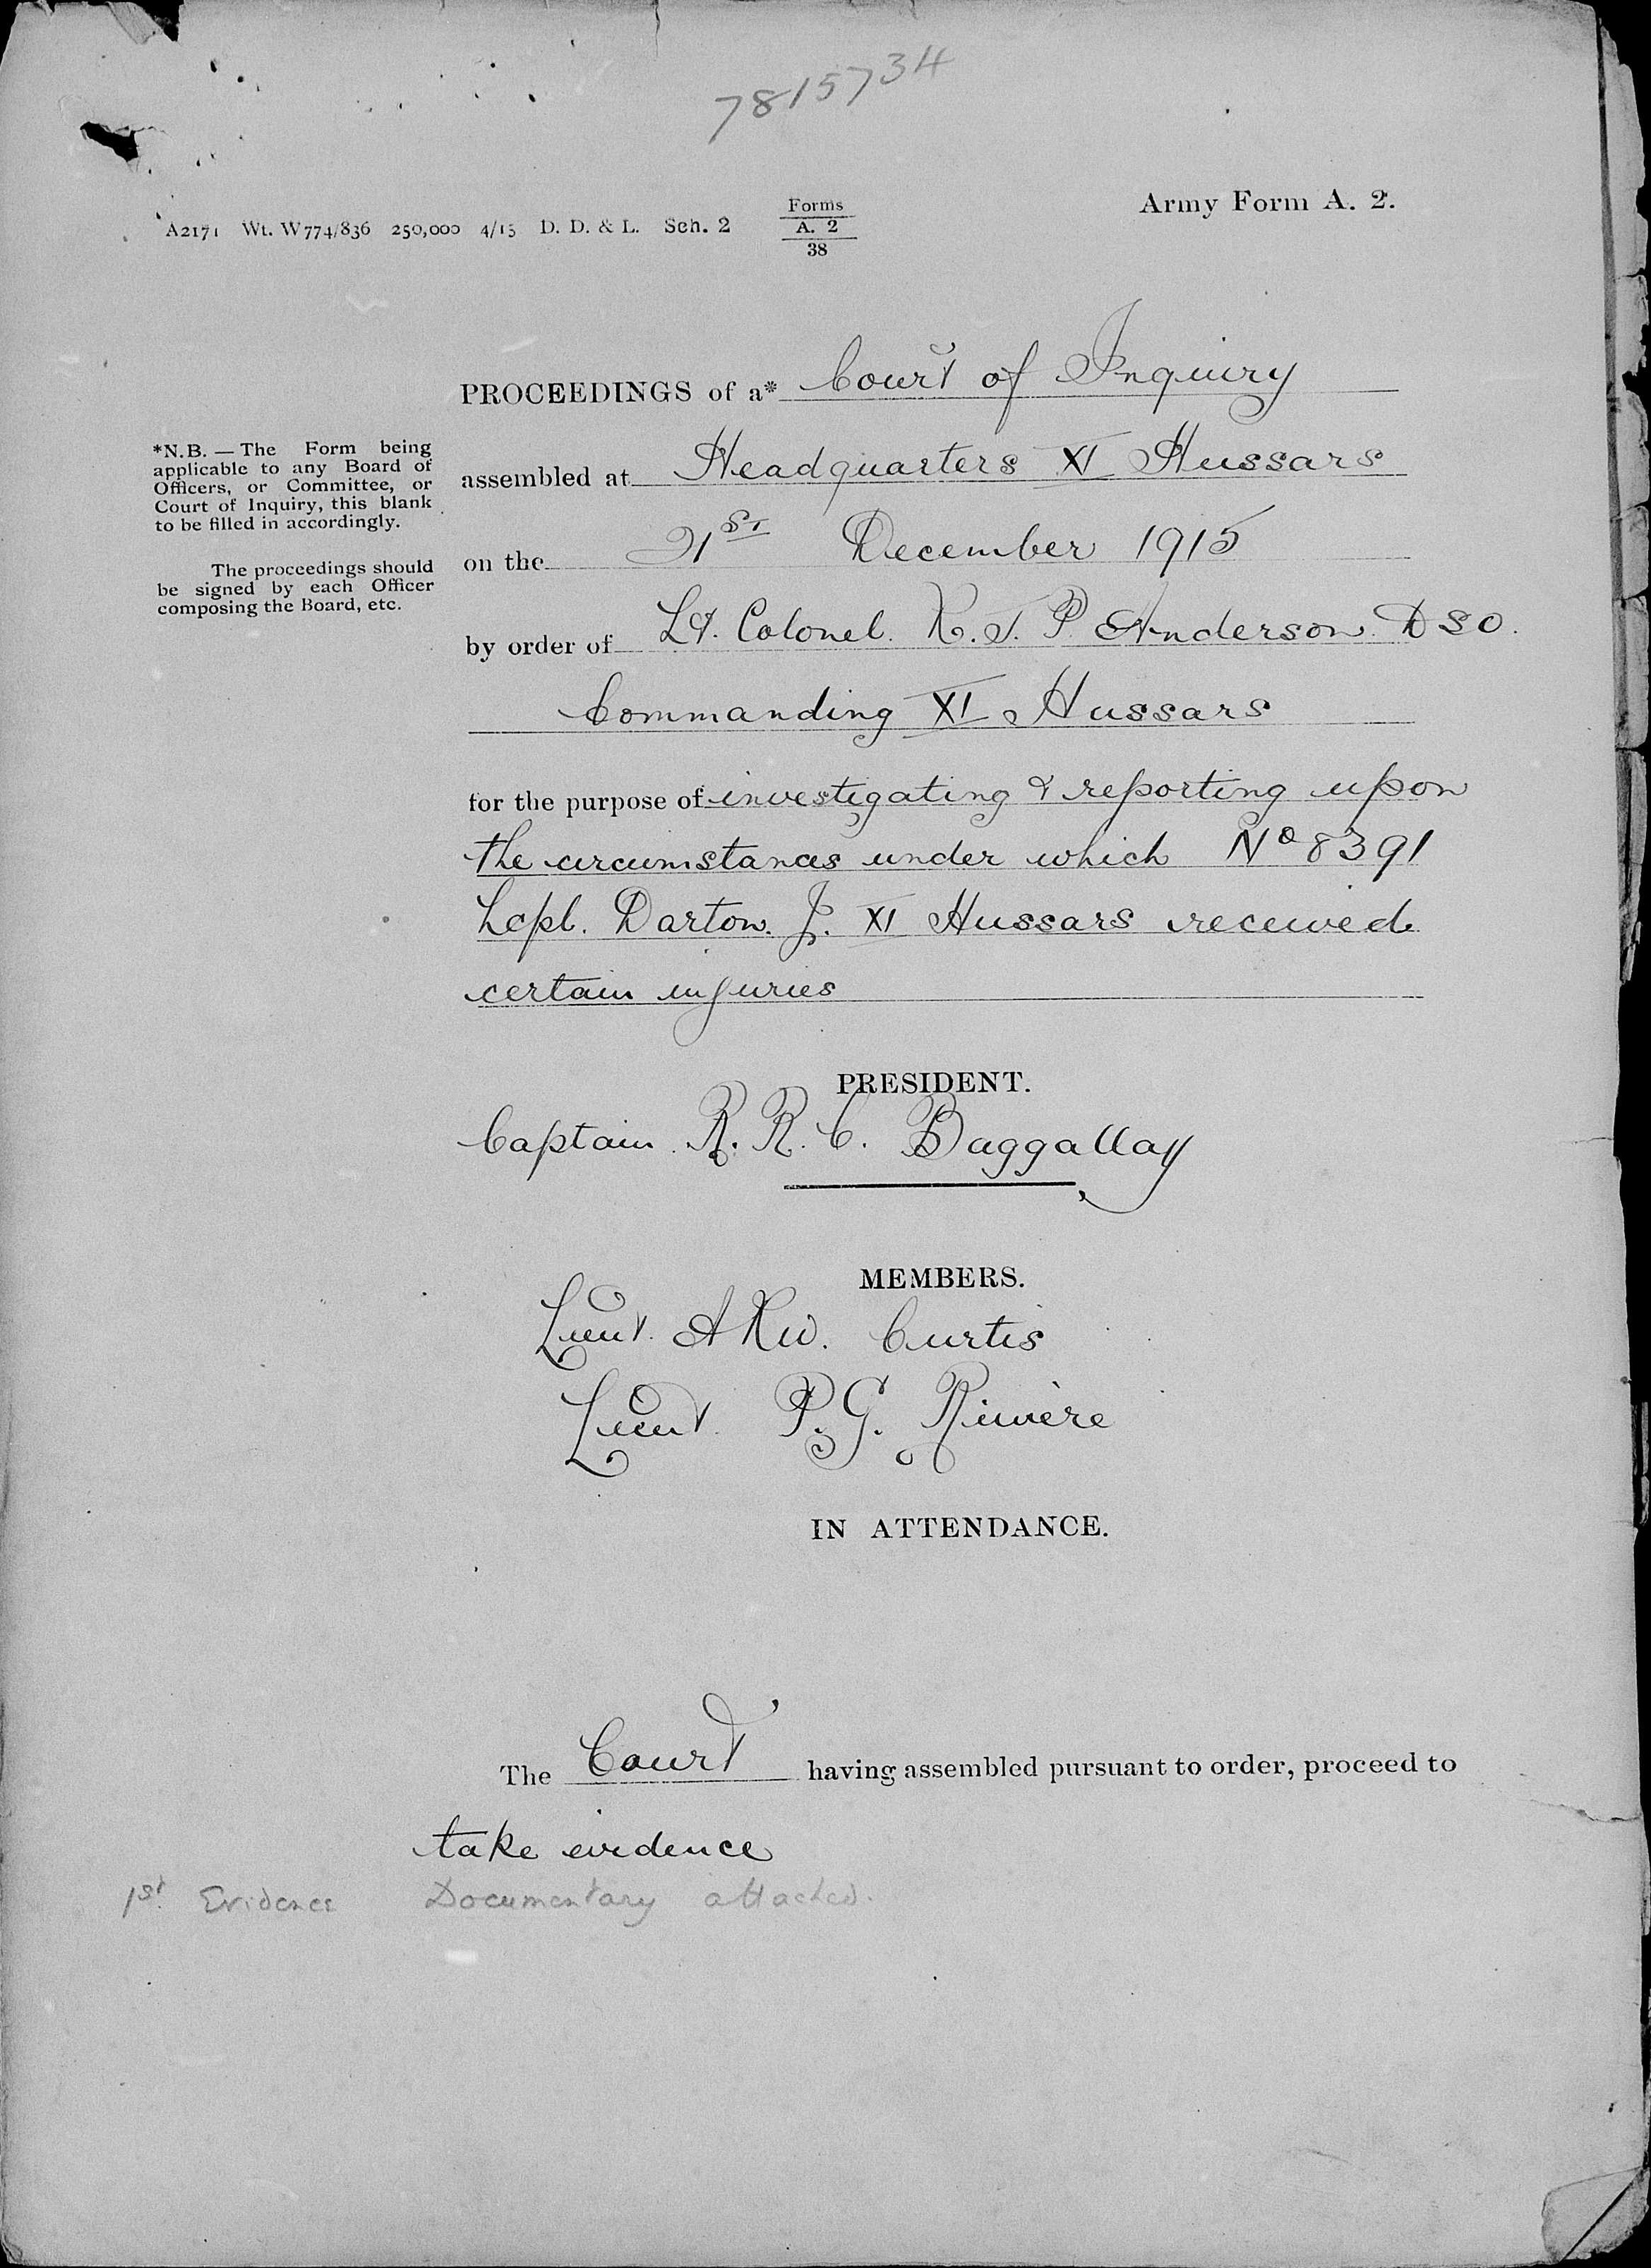 7815734
A2171 Wt. W774/836 250,000 4/15 D. D. & L. Sch. 2 Forms
A. 2
38
Army Form A. 2.
PROCEEDINGS of a* Court of Inquiry
*N.B. — The Form being
applicable to any Board of
Officers, or Committee, or
Court of Inquiry, this blank
to be filled in accordingly.
The proceedings should
be signed by each Officer
composing the Board, etc.
assembled at Headquarters XI Hussars
on the 21st December 1915
by order of Lt. Colonel. R. J. P. Anderson. DSO.
Commanding XI Hussars
for the purpose of investigating & reporting upon
the circumstances under which No 8391
Lcpl. Darton. J. XI Hussars received
certain injuries
PRESIDENT.
Captain. R. R. C. Baggallay
MEMBERS.
Lieut. A K W. Curtis
Lieut. P. G. Riviere
IN ATTENDANCE.
The Court having assembled pursuant to order, proceed to
take evidence
1st. Evidence Documentary attached.